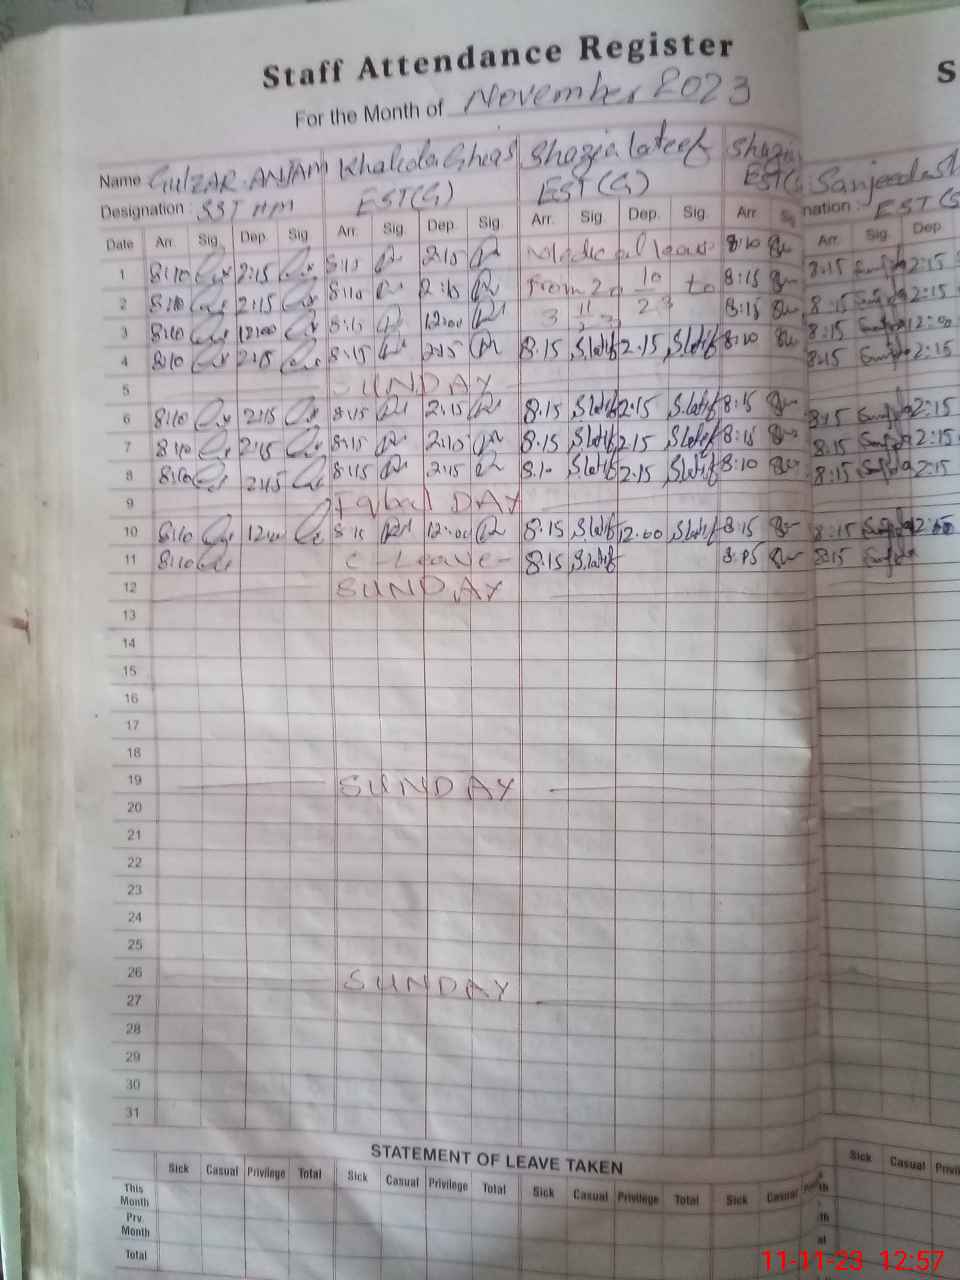 Staff Attendance Register
S
For the Month of November 2023
Name GULZAR ANJAM Khaleda Ghias Shazia lateef Shazia Sanjeeda
Designation : SST HM EST(G) EST(G) EST(G nation : EST(G
Date Arr. Sig. Dep. Sig Arr. Sig. Dep. Sig Arr. Sig. Dep. Sig. Arr. Sig Arr. Sig. Dep
1 8:10 2:15 8:15 2:15 Medical leave 8:10 8:15 2:15
2 8:10 2:15 8:10 2:15 From 20 10 23 to 8:15 8:15 2:15
3 8:10 12:00 8:15 12:00 3 11 23 8:15 8:15 12:00
4 8:10 2:15 8:15 2:15 8.15 S.latif 2.15 S.latif 8:10 8:15 2:15
5 SUNDAY
6 8:10 2:15 8:15 2:15 8.15 S.latif 2.15 S.latif 8:15 8:15 2:15
7 8:10 2:15 8:15 2:15 8.15 S.latif 2.15 S.latif 8:15 8:15 2:15
8 8:10 2:15 8:15 2:15 8.10 S.latif 2.15 S.latif 8:10 8:15 2:15
9 Iqbal DAY
10 8:10 12:00 8:15 12:00 8.15 S.latif 12.00 S.latif 8:15 8:15 12:00
11 8:10 C-Leave- 8.15 S.latif 8:15 8:15
12 SUNDAY
13
14
15
16
17
18
19 SUNDAY
20
21
22
23
24
25
26 SUNDAY
27
28
29
30
31
STATEMENT OF LEAVE TAKEN
Sick Casual Privilege Total Sick Casual Privilege Total Sick Casual Privilege Total Sick Casual Sick Casual Privi
This Month
Prv. Month
Total
11-11-23 12:57